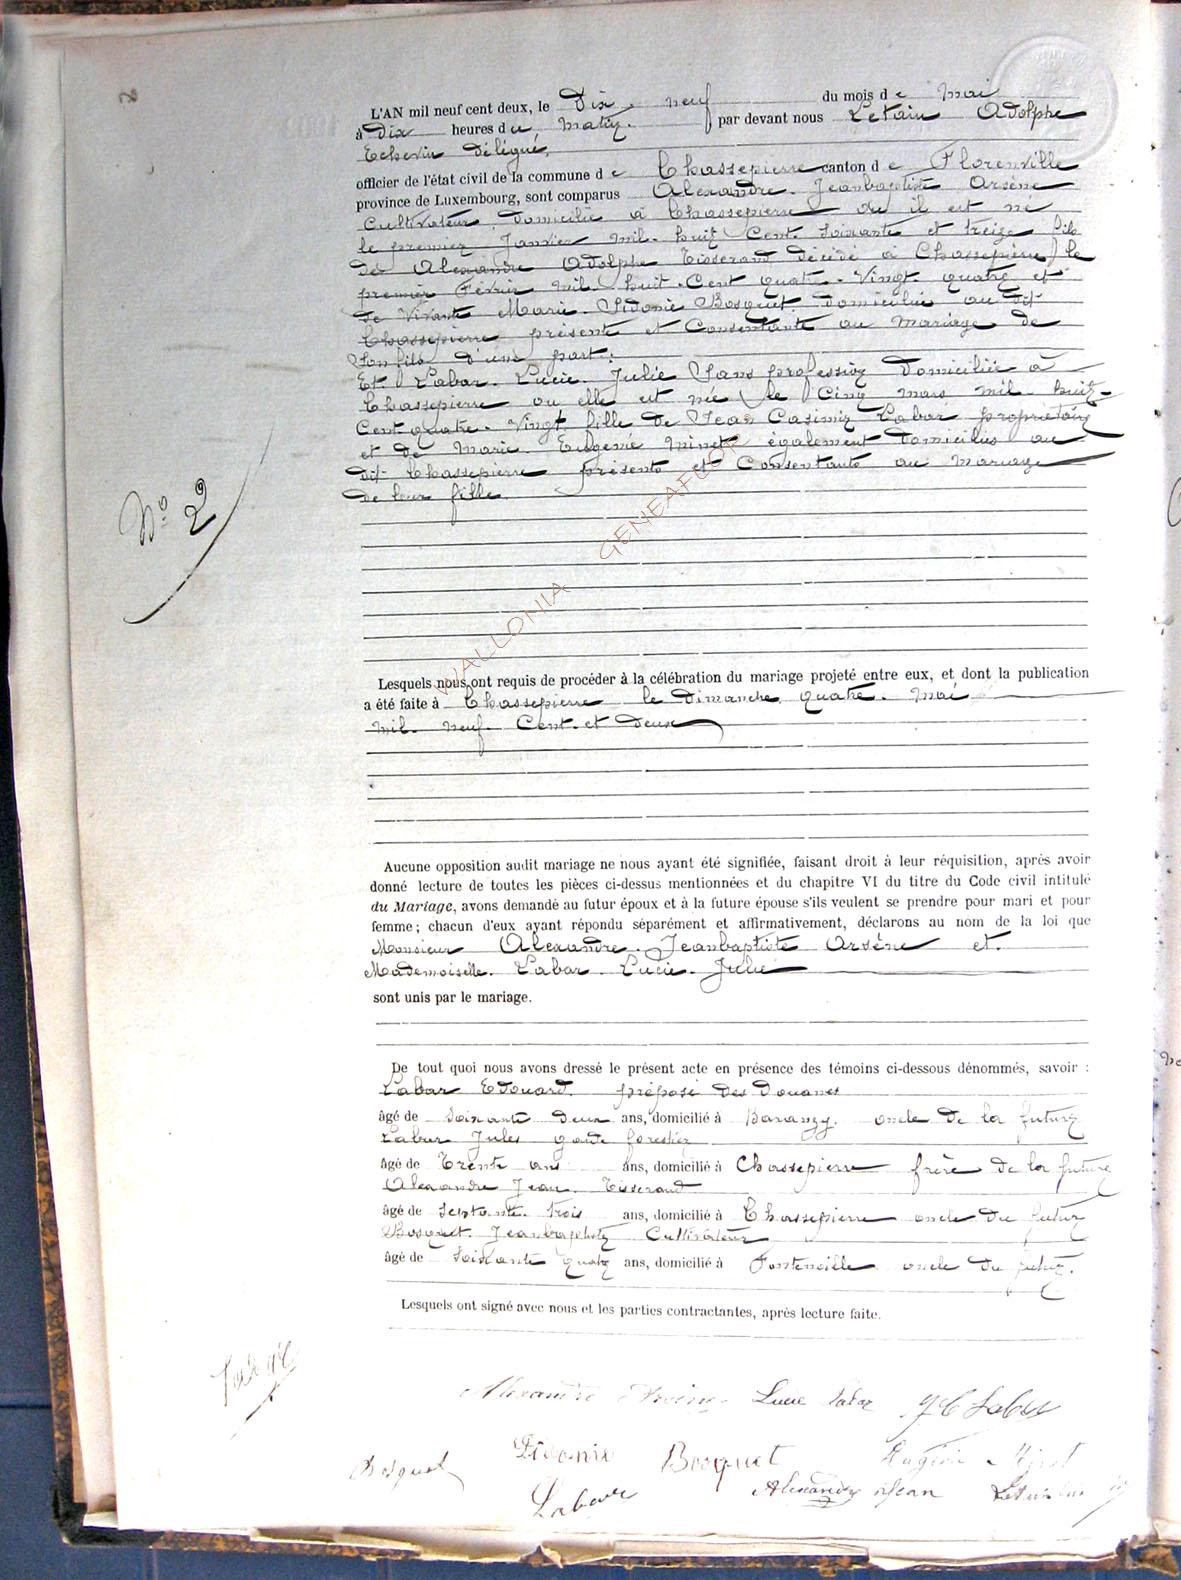 L'AN mil neuf cent deux, le Dix neuf du mois de Mai
à Dix heures du Matin par devant nous Letain Adolphe
Echevin délégué,
officier de l'état civil de la commune de Chassepierre canton de Florenville
province de Luxembourg, sont comparus Alexandre Jeanbaptiste Arsène
Cultivateur, domicilié à Chassepierre ou il est né
le premier Janvier mil huit Cent Soixante et treize fils
de Alexandre Adolphe Tisserand décédé à Chassepierre le
premier Février mil huit Cent quatre Vingt quatre et
de Vivante Marie Sidonie Bosquet domiciliée au dit
Chassepierre présente et Consentante au Mariage de
Son fils d'une part;
Et Labar Lucie Julie Sans profession domiciliée à
Chassepierre ou elle est née le Cinq mars mil huit
Cent quatre Vingt fille de Jean Casimir Labar propriétaire
et de Marie Eugenie Minet également domiciliés au
dit Chassepierre présents et Consentants au Mariage
de leur fille
No 2
WALLONIA GENEAFUOR
Lesquels nous ont requis de procéder à la célébration du mariage projeté entre eux, et dont la publication
a été faite à Chassepierre le Dimanche quatre Mai
mil neuf Cent et deux
Aucune opposition audit mariage ne nous ayant été signifiée, faisant droit à leur réquisition, après avoir
donné lecture de toutes les pièces ci-dessus mentionnées et du chapitre VI du titre du Code civil intitulé
du Mariage, avons demandé au futur époux et à la future épouse s'ils veulent se prendre pour mari et pour
femme; chacun d'eux ayant répondu séparément et affirmativement, déclarons au nom de la loi que
Monsieur Alexandre Jeanbaptiste Arsène et
Mademoiselle Labar Lucie Julie
sont unis par le mariage.
De tout quoi nous avons dressé le présent acte en présence des témoins ci-dessous dénommés, savoir :
Labar Edouard préposé des Douanes
âgé de Soixante deux ans, domicilié à Baranzy oncle de la future
Labar Jules garde forestier
âgé de Trente ans ans, domicilié à Chassepierre frère de la future
Alexandre Jean Tisserand
âgé de Septante trois ans, domicilié à Chassepierre oncle du futur
Bosquet Jeanbaptiste Cultivateur
âgé de Soixante quatre ans, domicilié à Fontenoille oncle du futur.
Lesquels ont signé avec nous et les parties contractantes, après lecture faite.
Alexandre Arsène Lucie Labar JC Labar
Bosquet Sidonie Bosquet Eugénie Minet
Labar Alexandre Jean